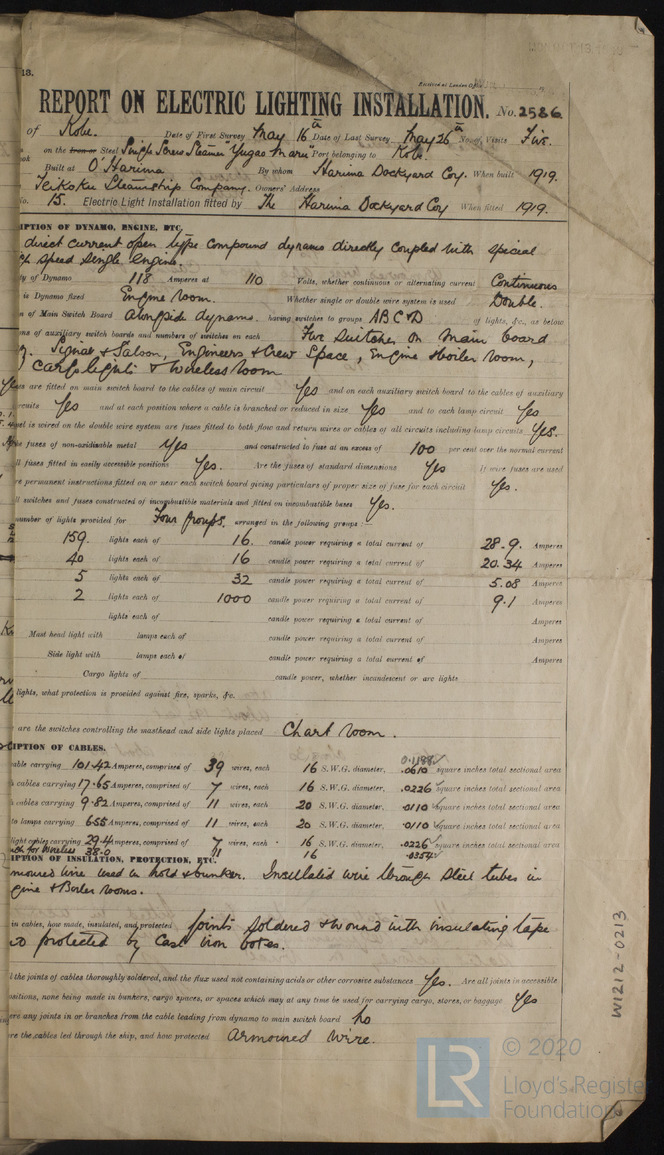 13.
Received at London Office
REPORT ON ELECTRIC LIGHTING INSTALLATION. No. 2586
of Kobe. Date of First Survey May 16th Date of Last Survey May 26th No. of Visits Five.
on the Iron or Steel Single Screw Steamer "Yugao Maru" Port belonging to Kobe.
Built at O'Harima By whom Harima Dockyard Coy. When built 1919.
Teikoku Steamship Company. Owners' Address
No. 15. Electric Light Installation fitted by The Harima Dockyard Coy When fitted 1919.
IPTION OF DYNAMO, ENGINE, ETC.
direct current open type compound dynamo directly coupled with special
gh speed single engine.
ty of Dynamo 118 Amperes at 110 Volts, whether continuous or alternating current Continuous
is Dynamo fixed Engine room. Whether single or double wire system is used Double.
n of Main Switch Board alongside dynamo. having switches to groups ABC&D of lights, &c., as below
ons of auxiliary switch boards and numbers of switches on each Five switches on main board
Signal & Saloon, Engineers & Crew Space, Engine & boiler room,
Cargo lights & Wireless room
es are fitted on main switch board to the cables of main circuit Yes and on each auxiliary switch board to the cables of auxiliary
ircuits Yes and at each position where a cable is branched or reduced in size Yes and to each lamp circuit Yes
ssel is wired on the double wire system are fuses fitted to both flow and return wires or cables of all circuits including lamp circuits Yes.
he fuses of non-oxidizable metal Yes and constructed to fuse at an excess of 100 per cent over the normal current
ll fuses fitted in easily accessible positions Yes. Are the fuses of standard dimensions Yes If wire fuses are used
re permanent instructions fitted on or near each switch board giving particulars of proper size of fuse for each circuit Yes.
ll switches and fuses constructed of incombustible materials and fitted on incombustible bases Yes.
number of lights provided for Four groups. arranged in the following groups:—
159. lights each of 16. candle power requiring a total current of 28.9. Amperes
40 lights each of 16 candle power requiring a total current of 20.34 Amperes
5 lights each of 32 candle power requiring a total current of 5.08 Amperes
2 lights each of 1000 candle power requiring a total current of 9.1 Amperes
lights each of candle power requiring a total current of Amperes
Mast head light with lamps each of candle power requiring a total current of Amperes
Side light with lamps each of candle power requiring a total current of Amperes
Cargo lights of candle power, whether incandescent or arc lights
lights, what protection is provided against fire, sparks, &c.
are the switches controlling the masthead and side lights placed Chart room.
IPTION OF CABLES.
0.1188
able carrying 101.42 Amperes, comprised of 39 wires, each 16 S.W.G. diameter, .0610 square inches total sectional area
h cables carrying 17.65 Amperes, comprised of 7 wires, each 16 S.W.G. diameter, .0226 square inches total sectional area
h cables carrying 9.82 Amperes, comprised of 11 wires, each 20 S.W.G. diameter, .0110 square inches total sectional area
to lamps carrying 6.55 Amperes, comprised of 11 wires, each 20 S.W.G. diameter, .0110 square inches total sectional area
light cables carrying 29.4 Amperes, comprised of 7 wires, each 16 S.W.G. diameter, .0226 square inches total sectional area
for Wireless 38.0 11 16 .0354
IPTION OF INSULATION, PROTECTION, ETC.
moured wire used in hold & bunker. Insulated wire through steel tubes in
gine & Boiler rooms.
in cables, how made, insulated, and protected joints soldered & wound with insulating tape
protected by cast iron boxes.
l the joints of cables thoroughly soldered, and the flux used not containing acids or other corrosive substances Yes. Are all joints in accessible
ositions, none being made in bunkers, cargo spaces, or spaces which may at any time be used for carrying cargo, stores, or baggage Yes
ere any joints in or branches from the cable leading from dynamo to main switch board No
re the cables led through the ship, and how protected Armoured wire.
W1212-0213
LR
© 2020
Lloyd's Register
Foundation